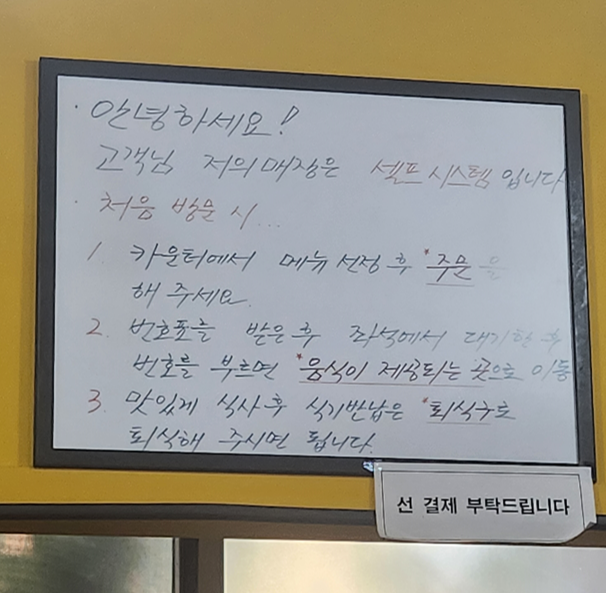 · 안녕하세요!
고객님 저의매장은 셀프시스템입니다
· 처음 방문 시...
1. 카운터에서 메뉴선정 후 *주문을
해 주세요.
2. 번호표를 받은후 좌석에서 대기한 후
번호를 부르면 *음식이 제공되는 곳으로 이동
3. 맛있게 식사후 식기반납은 *퇴식구로
퇴식해 주시면 됩니다.
선 결제 부탁드립니다